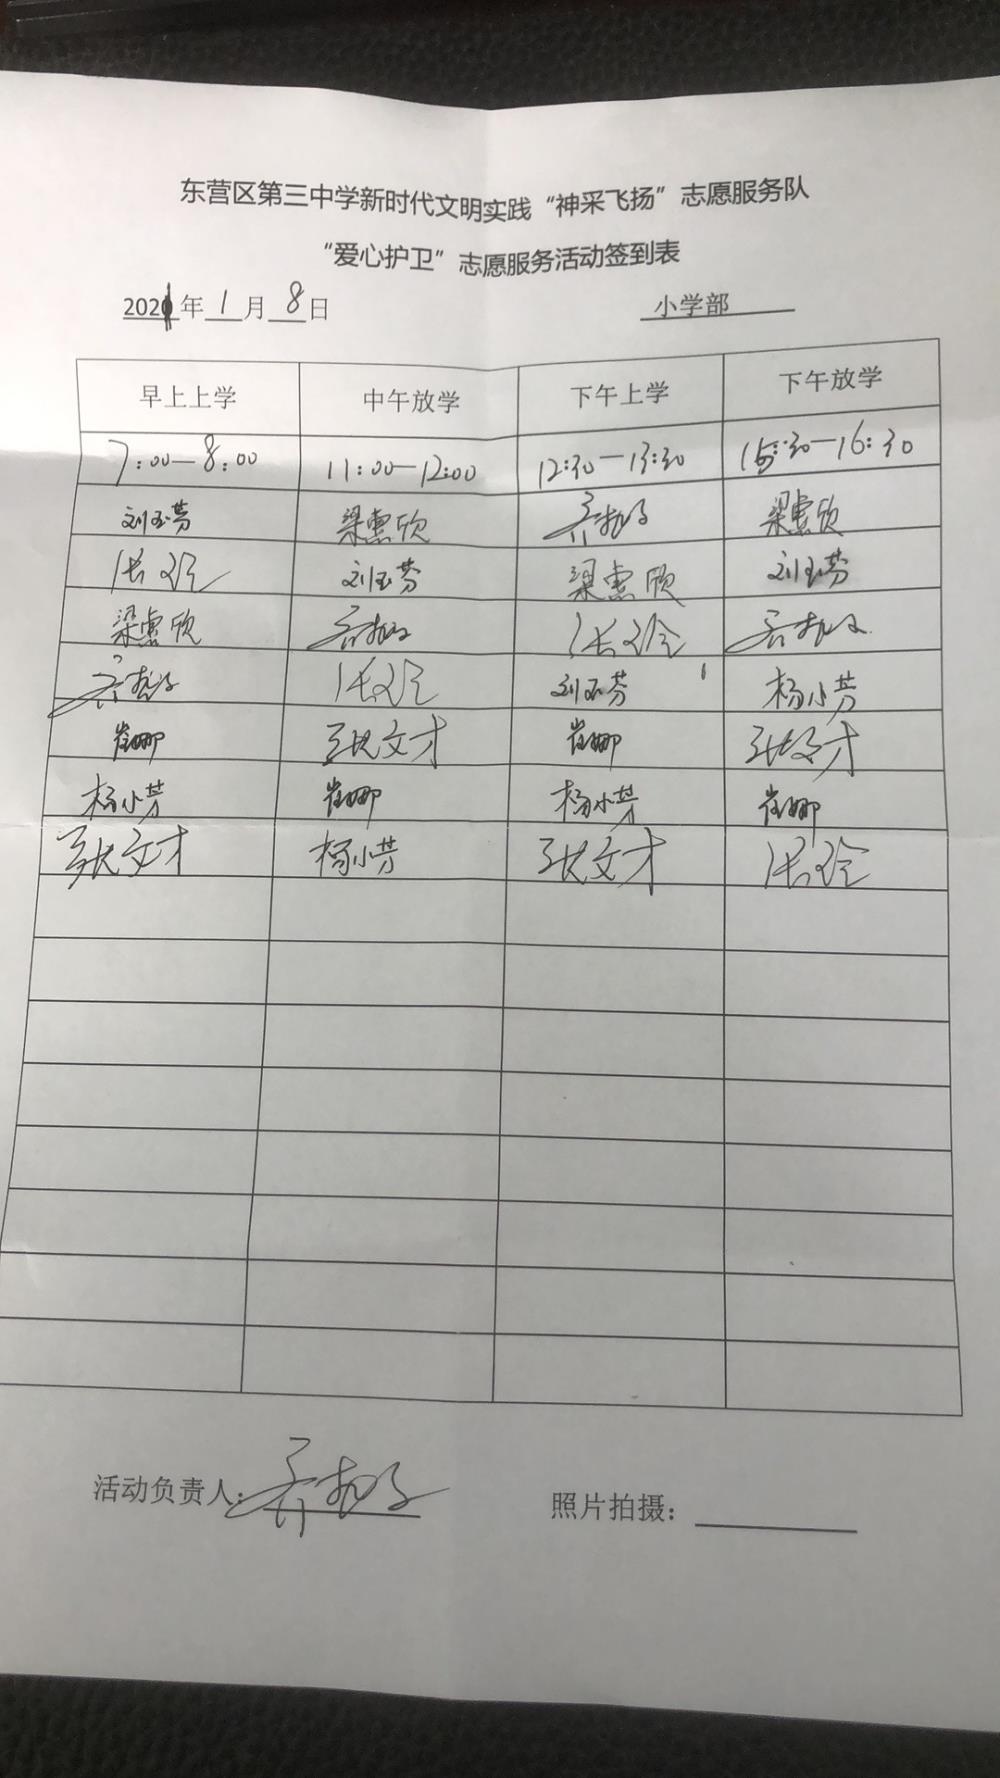 东营区第三中学新时代文明实践“神采飞扬”志愿服务队
“爱心护卫”志愿服务活动签到表
2021年 1 月 8 日 小学部
早上上学 中午放学 下午上学 下午放学
7:00—8:00 11:00—12:00 12:30—13:30 15:30—16:30
刘玉芬 梁惠欣 梁惠欣
刘玉芬 梁惠欣 刘玉芬
梁惠欣
刘玉芬 杨小芳
崔娜 张文才 崔娜 张文才
杨小芳 崔娜 杨小芳 崔娜
张文才 杨小芳 张文才
活动负责人: 照片拍摄: